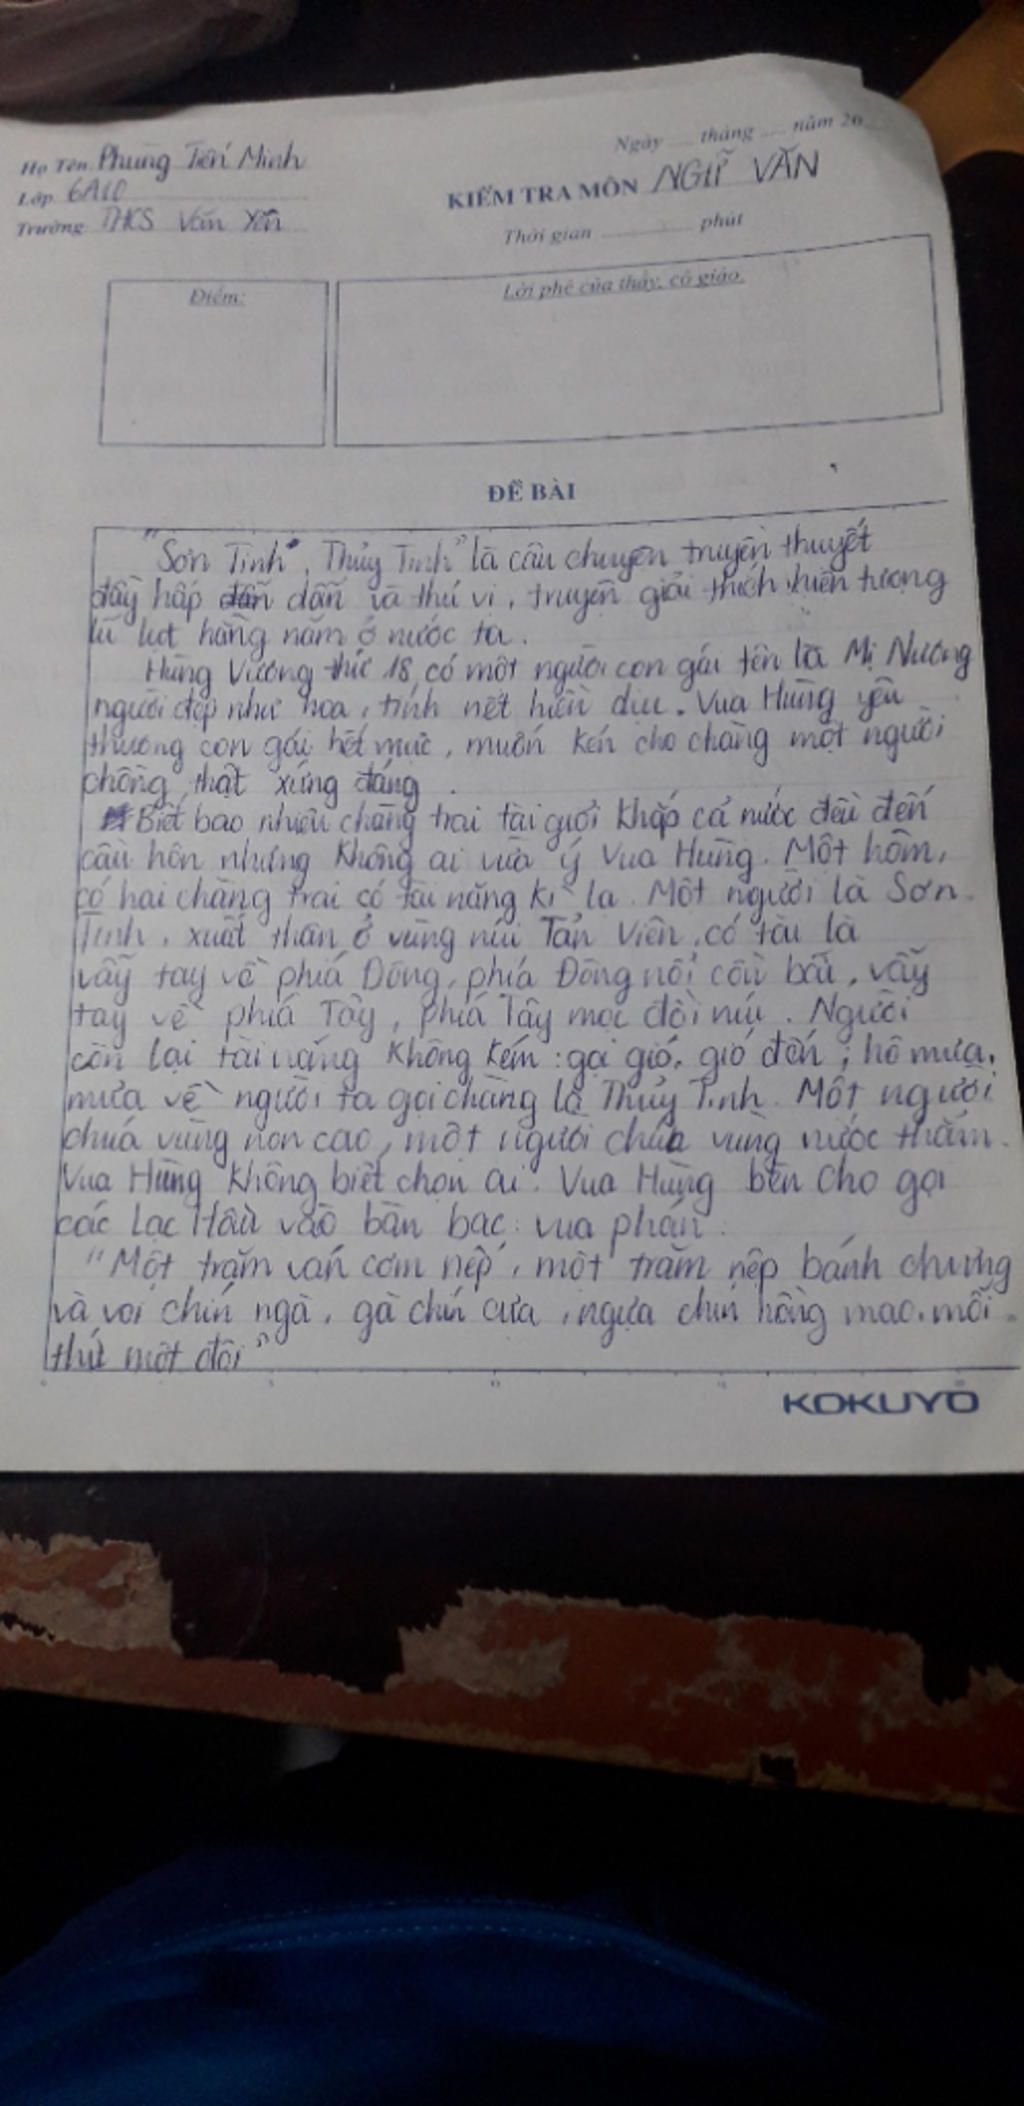 Ngày ... tháng ... năm 20
Họ Tên Phùng Tiến Minh
Lớp 6A10
KIỂM TRA MÔN NGỮ VĂN
Trường THCS Văn Yên
Thời gian ............ phút
Điểm:
Lời phê của thầy, cô giáo.
ĐỀ BÀI
"Sơn Tinh", Thủy Tinh" là câu chuyện truyền thuyết
đầy hấp dẫn và thú vị, truyện giải thích hiện tượng
lũ lụt hằng năm ở nước ta.
Hùng Vương thứ 18, có một người con gái tên là Mị Nương
người đẹp như hoa, tính nết hiền dịu. Vua Hùng yêu
thương con gái hết mực, muốn kén cho chàng một người
chồng thật xứng đáng.
Biết bao nhiêu chàng trai tài giỏi khắp cả nước đều đến
cầu hôn nhưng không ai vừa ý Vua Hùng. Một hôm,
có hai chàng trai có tài năng kì lạ. Một người là Sơn
Tinh, xuất thân ở vùng núi Tản Viên, có tài là
vẫy tay về phía Đông, phía Đông nổi cồn bãi, vẫy
tay về phía Tây, phía Tây mọc đồi núi. Người
còn lại tài năng không kém: gọi gió, gió đến; hô mưa,
mưa về người ta gọi chàng là Thủy Tinh. Một người
chúa vùng non cao, một người chúa vùng nước thẳm.
Vua Hùng không biết chọn ai. Vua Hùng bèn cho gọi
các Lạc Hầu vào bàn bạc: vua phán:
"Một trăm ván cơm nếp, một trăm nệp bánh chưng
và voi chín ngà, gà chín cựa, ngựa chín hồng mao, mỗi
thứ một đôi"
KOKUYO